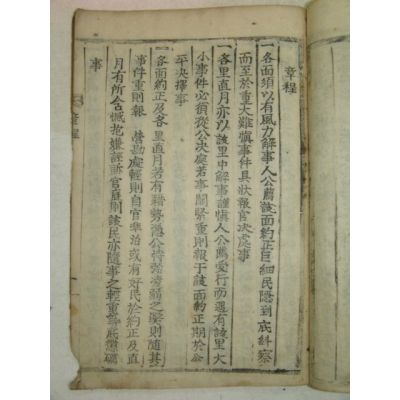 章程
一各面須以有風力解事人公薦該面約正巨細民隱到底糾察
而至於重大難慎事件具狀報官決處事
一各里直月亦以該里中解事謹慎人公薦爰行而還有該里大
小事件必須從公決處若事關緊重則報于該面約正期於公
平決擇事
一各面約正及各里直月若有藉勢憑公恃強凌弱之弊則隨其
事件重則報 營勘處輕則自官樂治或有好民於約正及直
月有所含憾抱嫌誣訴官庭則該民亦隨事之輕重
事
章程